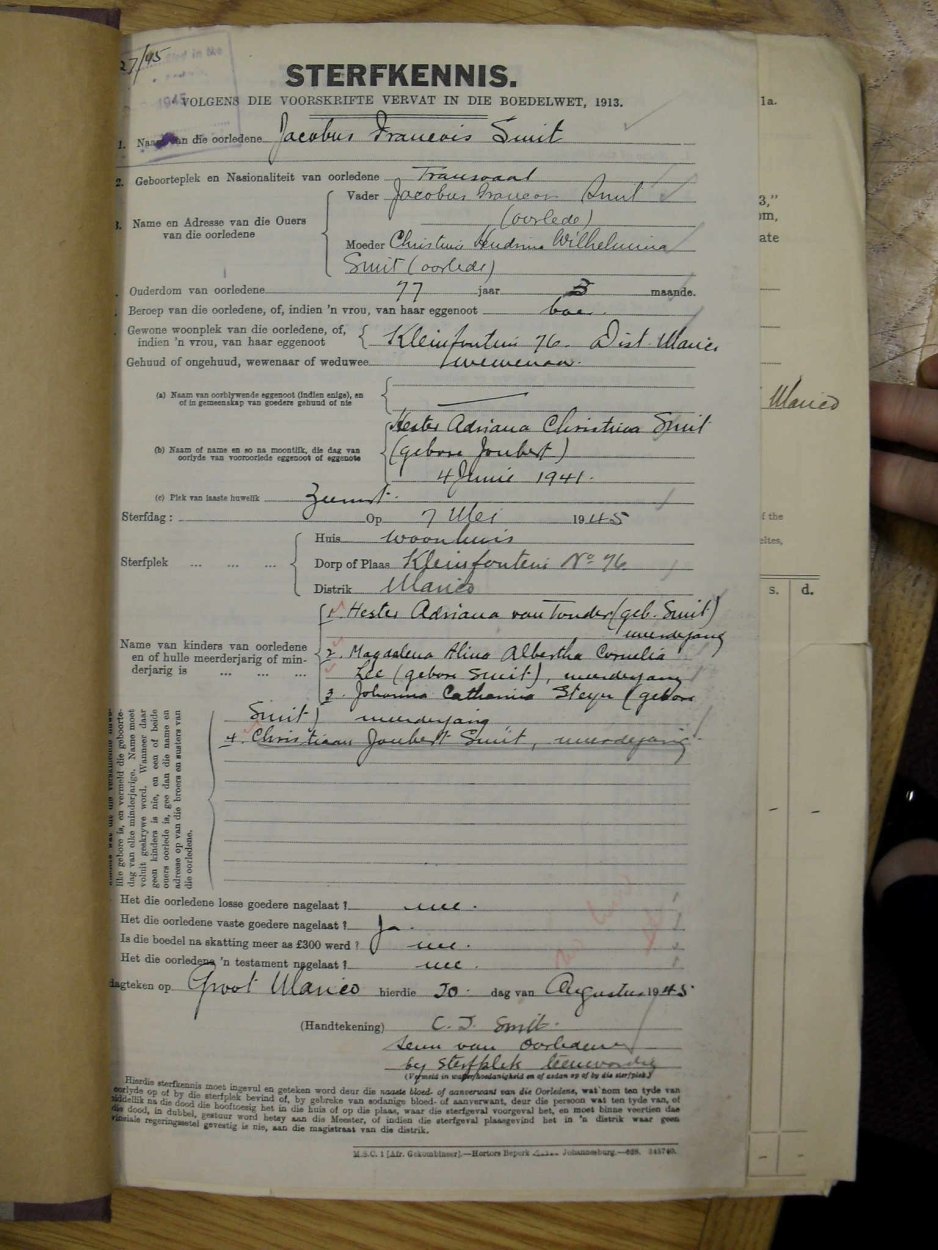 27/45
STERFKENNIS.
VOLGENS DIE VOORSKRIFTE VERVAT IN DIE BOEDELWET, 1913.
1. Naam van die oorledene Jacobus Francois Smit
2. Geboorteplek en Nasionaliteit van oorledene Transvaal
Vader Jacobus Francois Smit
3. Name en Adresse van die Ouers
van die oorledene
(oorlede)
Moeder Christina Hendrina Wilhelmina
Smit (oorlede)
Ouderdom van oorledene 77 jaar 3 maande.
Beroep van die oorledene, of, indien 'n vrou, van haar eggenoot boer.
Gewone woonplek van die oorledene, of,
indien 'n vrou, van haar eggenoot Kleinfontein 76. Dist. Marico
Gehuud of ongehuud, wewenaar of weduwee wewenaar.
(a) Naam van oorblywende eggenoot (indien enige), en
of in gemeenskap van goedere gehuud of nie
Hester Adriana Christina Smit
(b) Naam of name en so na moontlik, die dag van
oorlyde van vooroorlede eggenoot of eggenote
(gebore Joubert)
4 Junie 1941.
(c) Plek van laaste huwelik Zeerust.
Sterfdag: Op 7 Mei 1945
Huis woonhuis
Sterfplek ... ... ... Dorp of Plaas Kleinfontein No 76
Distrik Marico
1. Hester Adriana van Tonder (geb. Smit)
meerderjarig
Name van kinders van oorledene
en of hulle meerderjarig of min-
derjarig is ... ... ...
2. Magdalena Alina Albertha Cornelia
Lee (gebore Smit), meerderjarig
3. Johanna Catharina Steyn (gebore
Smit) meerderjarig
4. Christiaan Joubert Smit, meerderjarig
like gebore is, en vermeld die geboorte-
dag van elke minderjarige. Name moet
voluit geskrywe word. Wanneer daar
geen kinders is nie, en een of beide
ouers oorlede is, gee dan die name en
adresse op van die broers en susters van
die oorledene.
Het die oorledene losse goedere nagelaat? nee.
Het die oorledene vaste goedere nagelaat? Ja.
Is die boedel na skatting meer as £300 werd? nee.
Het die oorledene 'n testament nagelaat? nee.
dagteken op Groot Marico hierdie 30 dag van Augustus 1945
(Handtekening) C. J. Smit.
seun van oorledene
by sterfplek teenwoordig
(Vermeld in watter hoedanigheid en of aldan op of by die sterfplek)
Hierdie sterfkennis moet ingevul en geteken word deur die naaste bloed- of aanverwant van die Oorledene, wat nom ten tyde van
oorlyde op of by die sterfplek bevind of, by gebreke van sodanige bloed- of aanverwant, deur die persoon wat ten tyde van, of
middelik na die dood die hooftoesig het in die huis of op die plaas, waar die sterfgeval voorgeval het, en moet binne veertien dae
die dood, in dubbel, gestuur word hetsy aan die Meester, of indien die sterfgeval plaasgevind het in 'n distrik waar geen
vinsiale regeringssetel gevestig is nie, aan die magistraat van die distrik.
M.S.C. 1 [Afr. Gekombineer].—Hortors Beperk Johannesburg.—628. 345740.
1a.
3,"
om,
ate
Marico
f the
s. d.